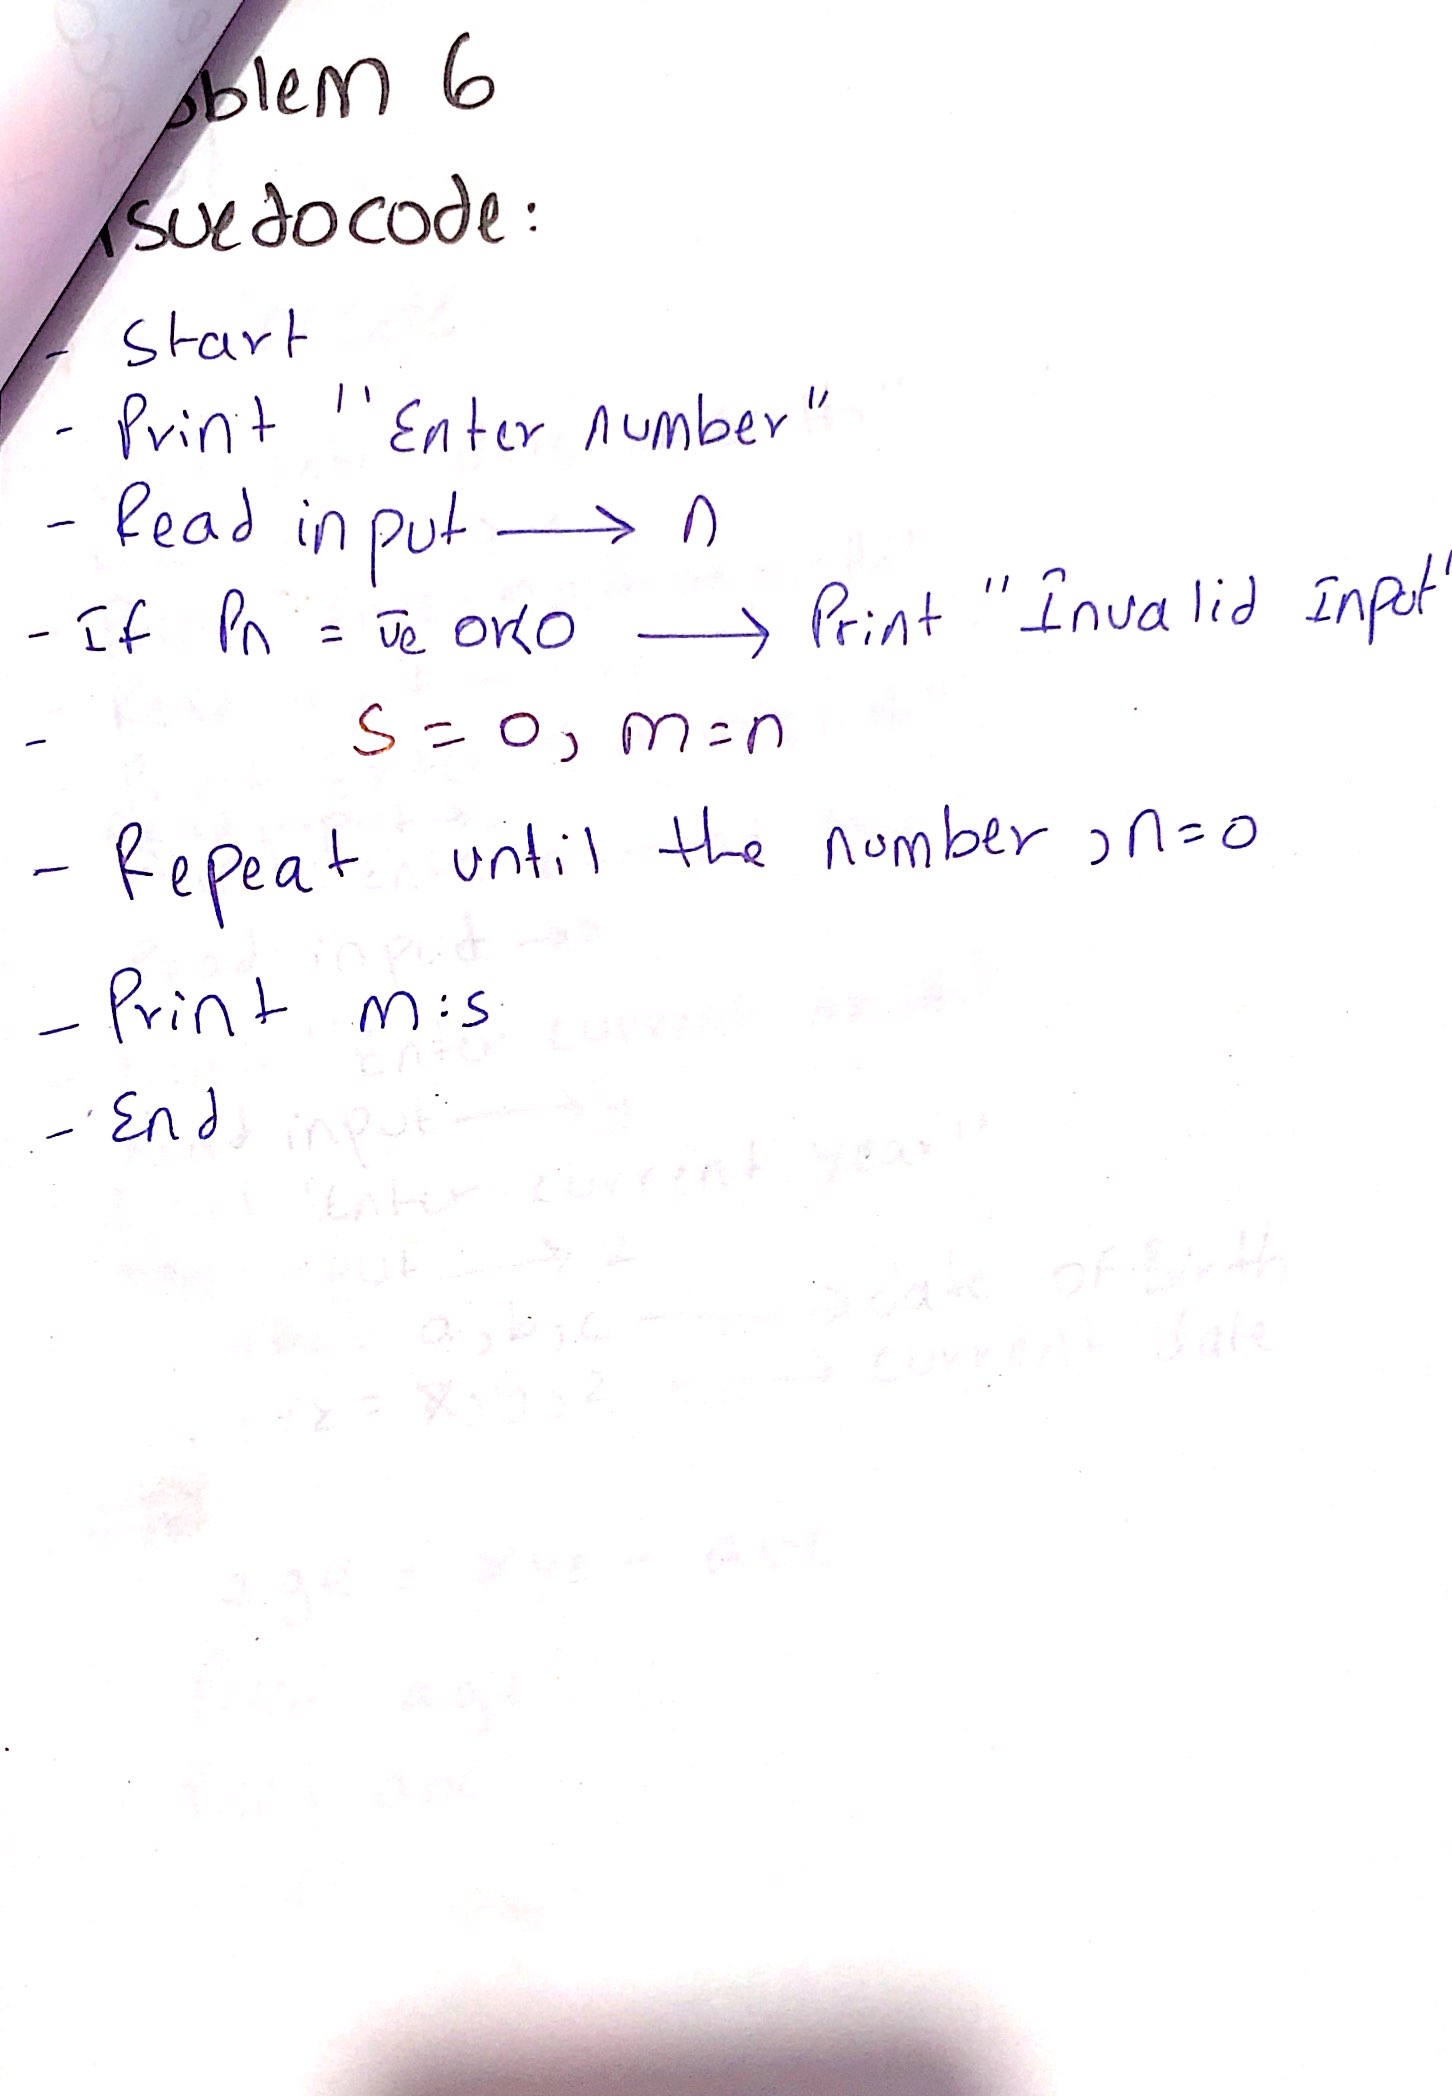 oblem 6
suedocode:
- Start
- Print "Enter number"
- Read input → n
- If Pn = ve or<0 → Print "Invalid Input"
- S = 0, m=n
- Repeat until the number , n=0
- Print m:s
- End